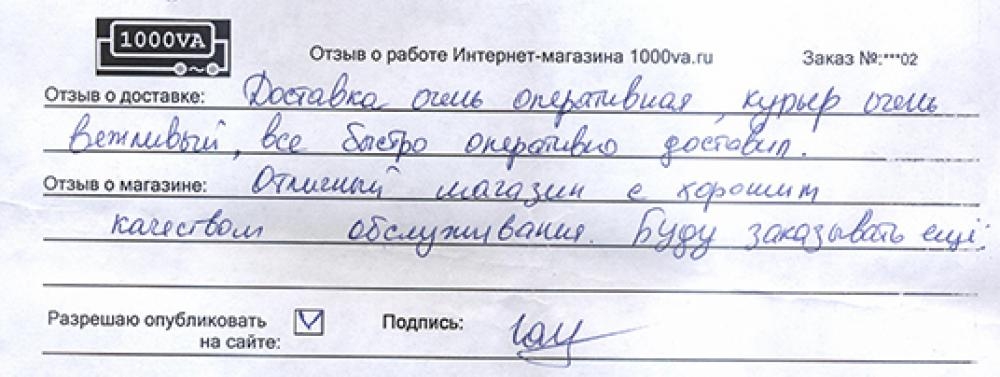 1000VA
Отзыв о работе Интернет-магазина 1000va.ru Заказ №:***02
Отзыв о доставке: Доставка очень оперативная, курьер очень
вежливый, все быстро оперативно доставил.
Отзыв о магазине: Отличный магазин с хорошим
качеством обслуживания. Буду заказывать ещё.
Разрешаю опубликовать Подпись:
на сайте: